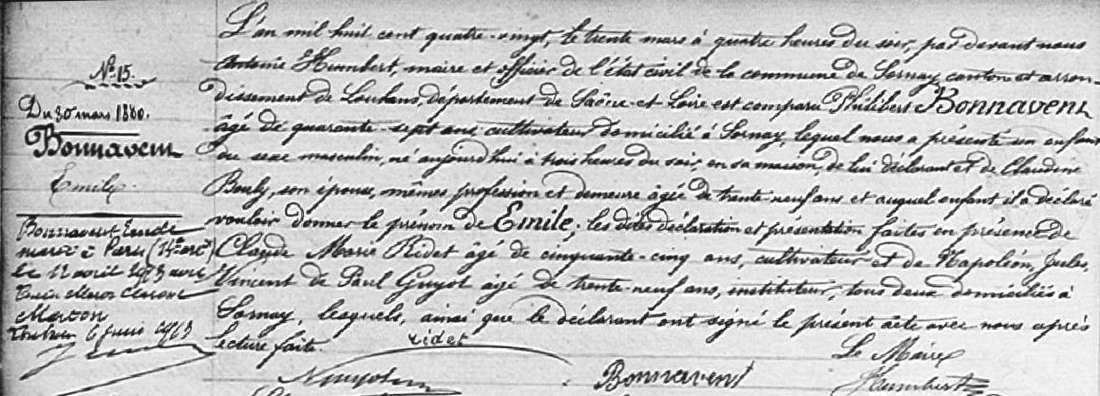 N° 15.
Du 30 mars 1880.
Bonnavent
Emile
Bonnavent Emile
marié à Paris (14e arrt)
le 12 avril 1913 avec
Marton
Louhans 6 juin 1913
L'an mil huit cent quatre-vingt, le trente mars à quatre heures du soir, par devant nous
Antoine Humbert, maire et officier de l'état civil de la commune de Sornay canton et arron-
dissement de Louhans, département de Saône-et-Loire est comparu Philibert Bonnavent
âgé de quarante-sept ans, cultivateur domicilié à Sornay, lequel nous a présenté un enfant
du sexe masculin, né aujourd'hui à trois heures du soir, en sa maison, de lui déclarant et de Claudine
Bouly, son épouse, mêmes profession et demeure âgée de trente-neuf ans et auquel enfant il a déclaré
vouloir donner le prénom de Emile; les dites déclaration et présentation faites en présence de
Claude Marie Ridet âgé de cinquante-cinq ans, cultivateur et de Napoléon, Jules,
Vincent de Paul Guyot âgé de trente-neuf ans, instituteur, tous deux domiciliés à
Sornay, lesquels, ainsi que le déclarant ont signé le présent acte avec nous après
lecture faite.
ridet
Le Maire
Bonnavent
Humbert